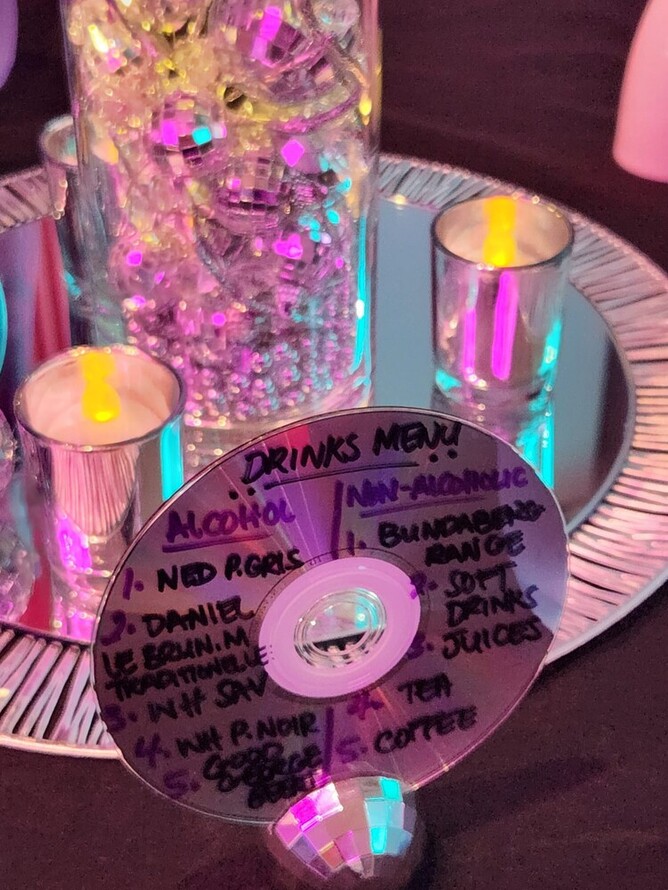 DRINKS MENU
ALCOHOL
1. NED P.GRIS
2. DANIEL
LE BRUN.M
TRADITIONELLE
3. WH SAV
4. WH P.NOIR
5. GOOD
GEORGE
NON-ALCOHOLIC
1. BUNDABERG
RANGE
2. SOFT
DRINKS
3. JUICES
4. TEA
5. COFFEE